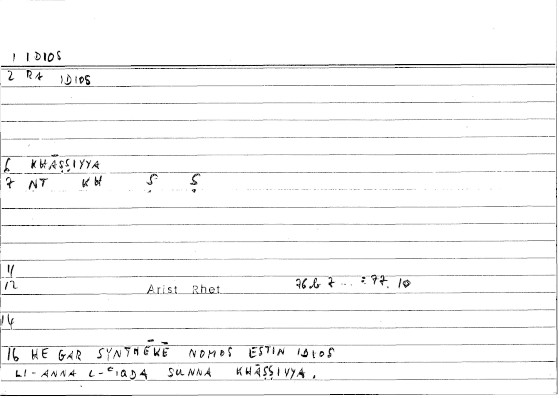 1 IDIOS
2 RA IDIOS
6 KHĀṢṢIYYA
7 NT KH Ṣ Ṣ
11
12 Arist Rhet 76b7 ... = 77.10
14
16 HE GAR SYNTHĒKĒ NOMOS ESTIN IDIOS
LI-ANNA L-ʿIQDA SUNNA KHĀṢṢIYYA.